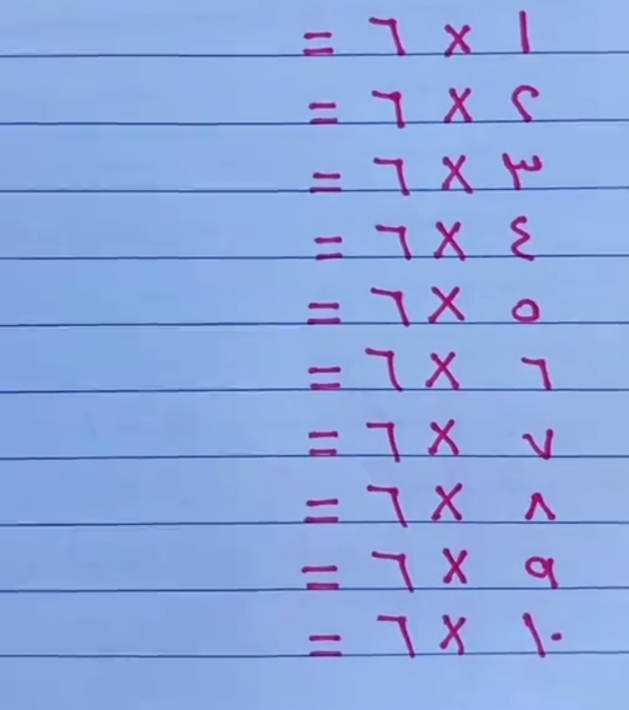 ١ × ٦ =
٢ × ٦ =
٣ × ٦ =
٤ × ٦ =
٥ × ٦ =
٦ × ٦ =
٧ × ٦ =
٨ × ٦ =
٩ × ٦ =
١٠ × ٦ =